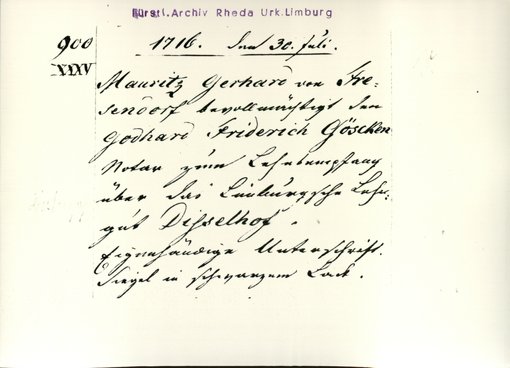 Fürstl. Archiv Rheda Urk. Limburg
900 1716. den 30. Juli.
XXXV
Mauritz Gerhard von Fre-
sendorf bevollmächtigt den
Godhard Friderich Göscken
Notar zum Lehnbempfang
über das Limburgsche Lehn-
gut Disselhof.
Eigenhändige Unterschrift.
Siegel in schwarzem Lack.